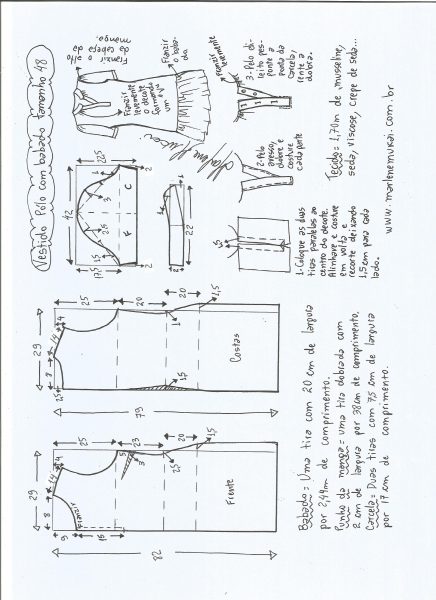 Vestido Pólo com babado tamanho 48
Franzir o alto
da cabeça da
manga.
Franzir
o baba-
do
Franzir
levemente
o decote
formando
um v
Franzir
levemente
3-Pelo di-
reito pes-
ponte a
borda da
carcela,
rente a
dobra.
2-Pelo
avesso,
dobre e
costure
cada parte
1-Coloque as duas
tiras paralelas ao
centro do decote.
Alinhave e costure
em volta e
recorte deixando
1,5 cm para cada
lado.
Tecido = 1,70m de musseline,
seda, viscose, crepe de seda...
www.marlenemukai.com.br
42
22,5
17,5
3
1
F
C
2
2
22
2
29
8
14
4
2,5
25
20
20
1
1,5
1,5
79
Costas
29
8
14
4
9
15
Franzir
25
23
20
5
3
2,5
1,5
82
Frente
Babado = Uma tira com 20 cm de largura
por 2,44m de comprimento.
Punho da manga = uma tira dobrada com
2 cm de largura por 38cm de comprimento.
Carcela = Duas tiras com 7,5 cm de largura
por 17 cm de comprimento.